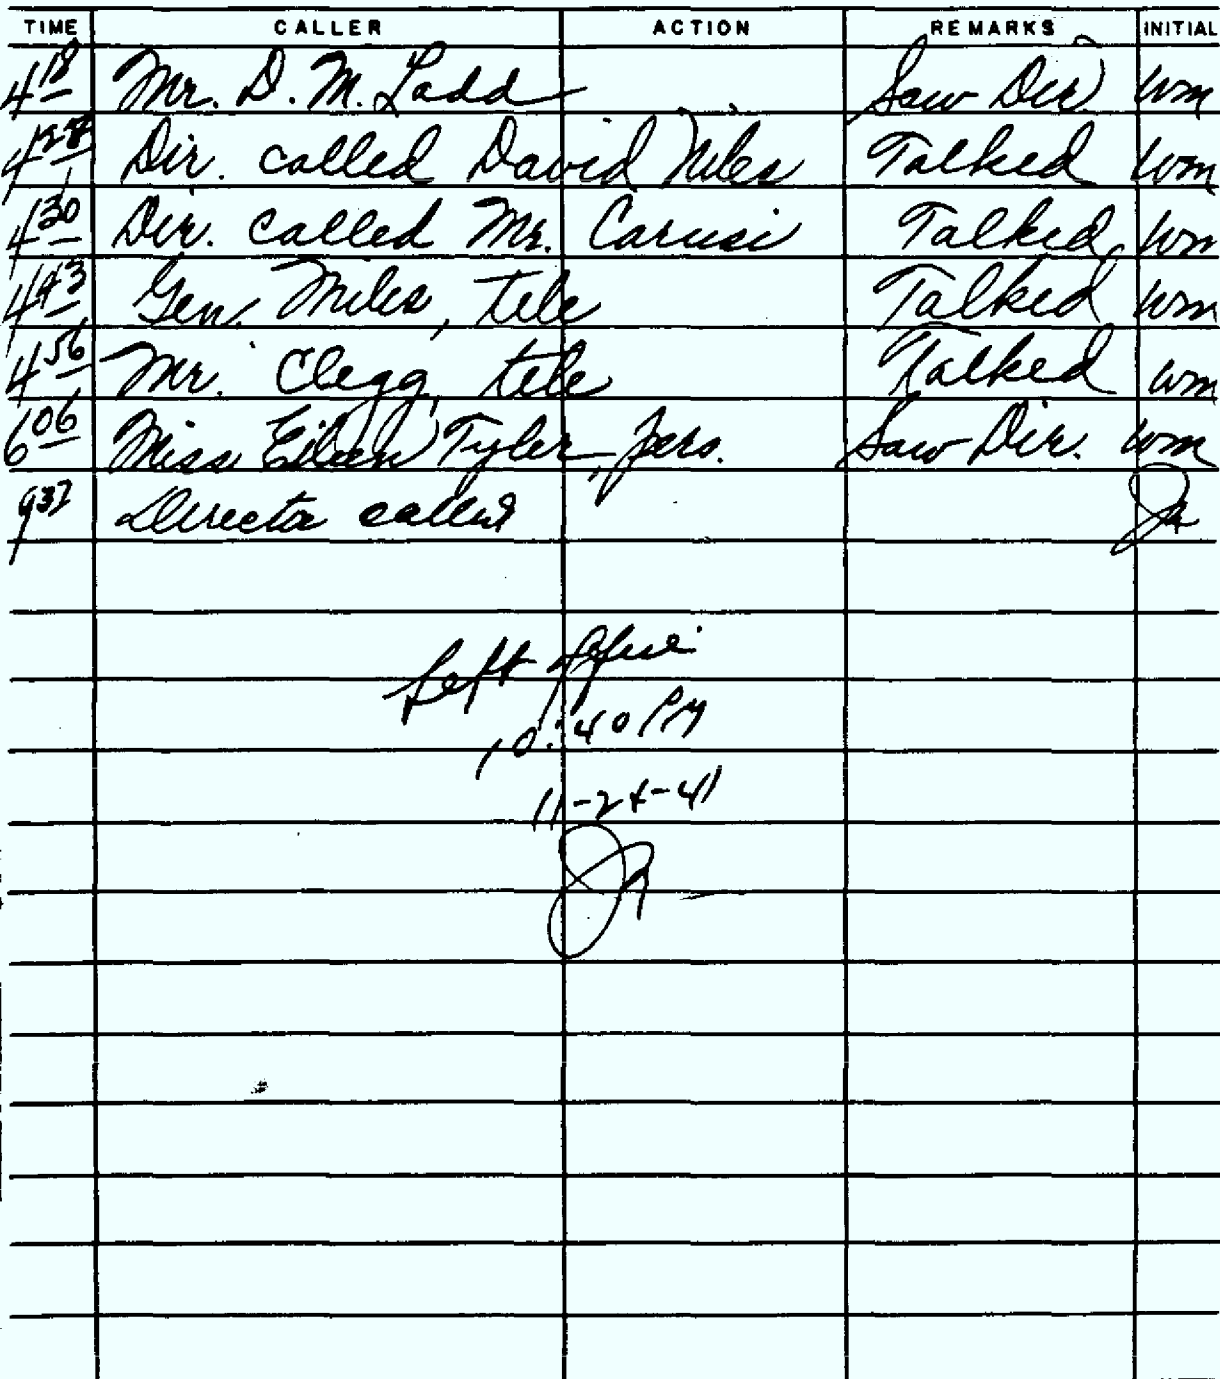 TIME CALLER ACTION REMARKS INITIAL
4 18 Mr. D. M. Ladd Saw Dir wm
4 28 Dir. called David Niles Talked wm
4 30 Dir. called Mr. Carusi Talked wm
4 43 Gen. Miles, tele Talked wm
4 56 Mr. Clegg, tele Talked wm
6 06 Miss Eileen Tyler, pers. Saw Dir. wm
9 37 Director called
Left Office
10:40 PM
11-24-41